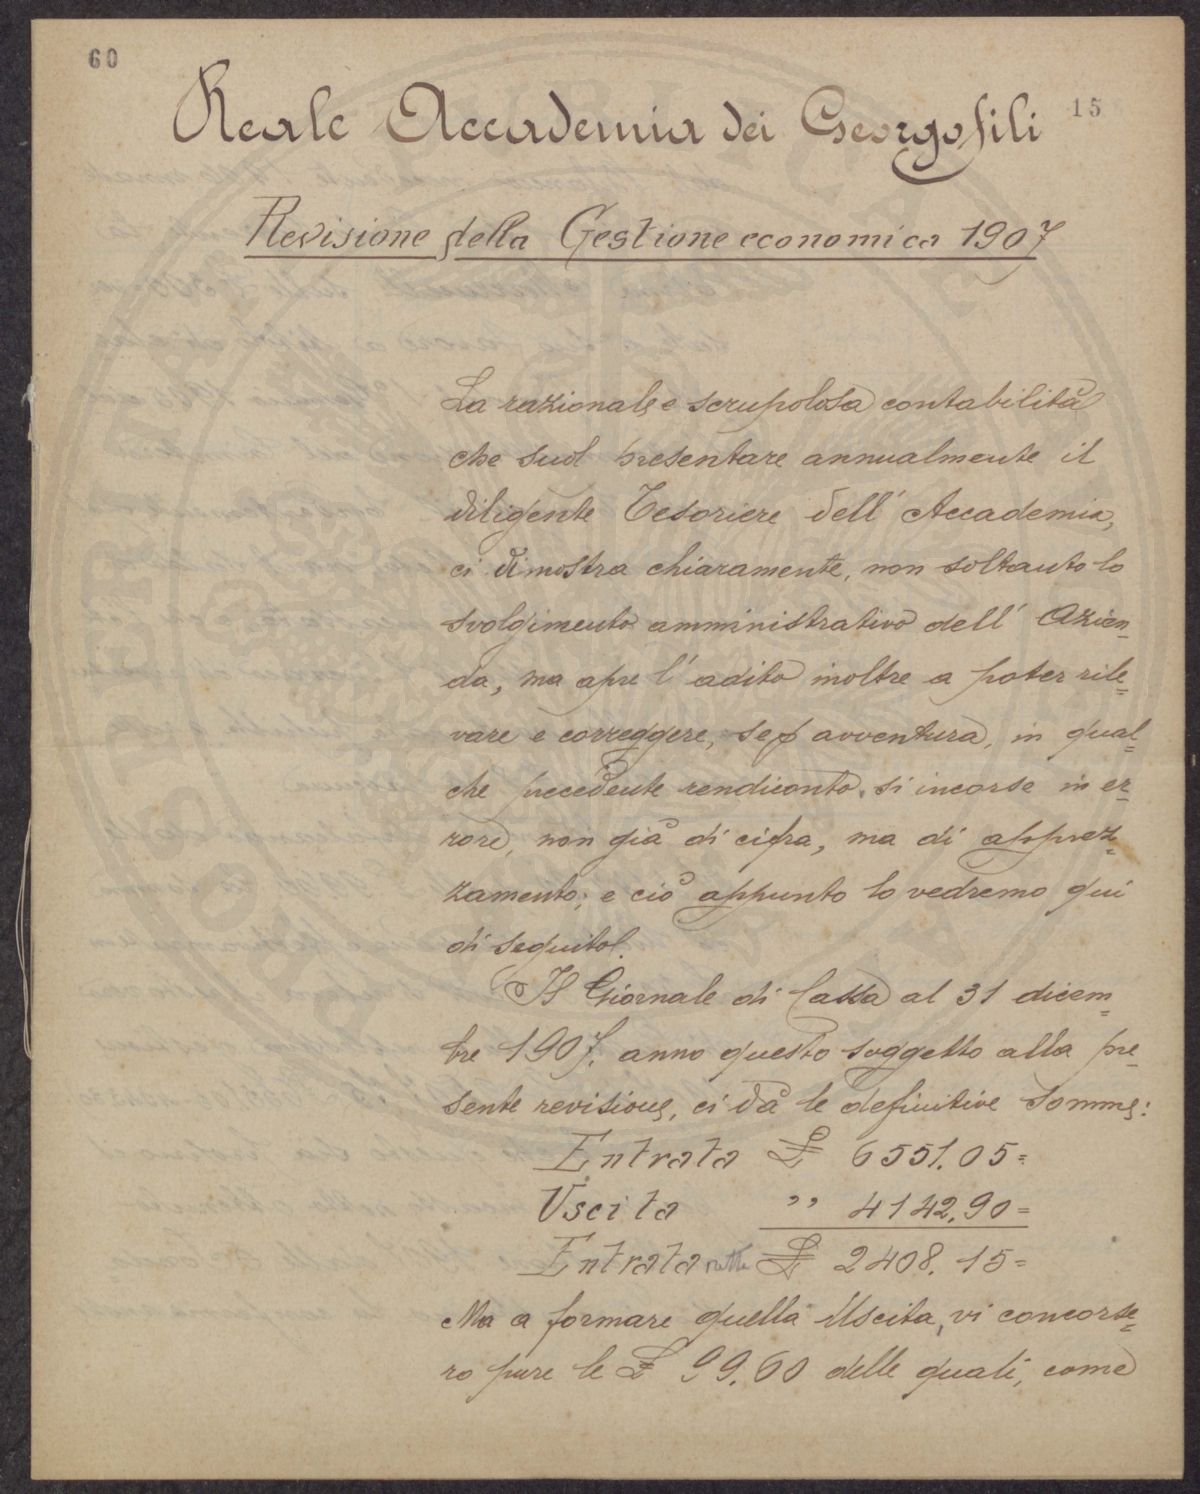 60
15
Reale Accademia dei Georgofili
Revisione della Gestione economica 1907
La razionale e scrupolosa contabilità
che suol presentare annualmente il
diligente Tesoriere dell' Accademia,
ci dimostra chiaramente, non soltanto lo
svolgimento amministrativo dell' Azien=
da, ma apre l' adito inoltre a poter rile=
vare e correggere, se p avventura, in qual=
che precedente rendiconto, si incorse in er=
rore, non già di cifra, ma di apprez=
zamento; e ciò appunto lo vedremo qui
di seguito.
Il Giornale di Cassa al 31 dicem=
bre 1907, anno questo soggetto alla pre=
sente revisione, ci dà le definitive somme:
Entrata £ 6551.05=
Uscita " 4142.90=
Entrata netta £ 2408.15=
Ma a formare quella Uscita, vi concorse=
ro pure le £ 99.60 delle quali, come